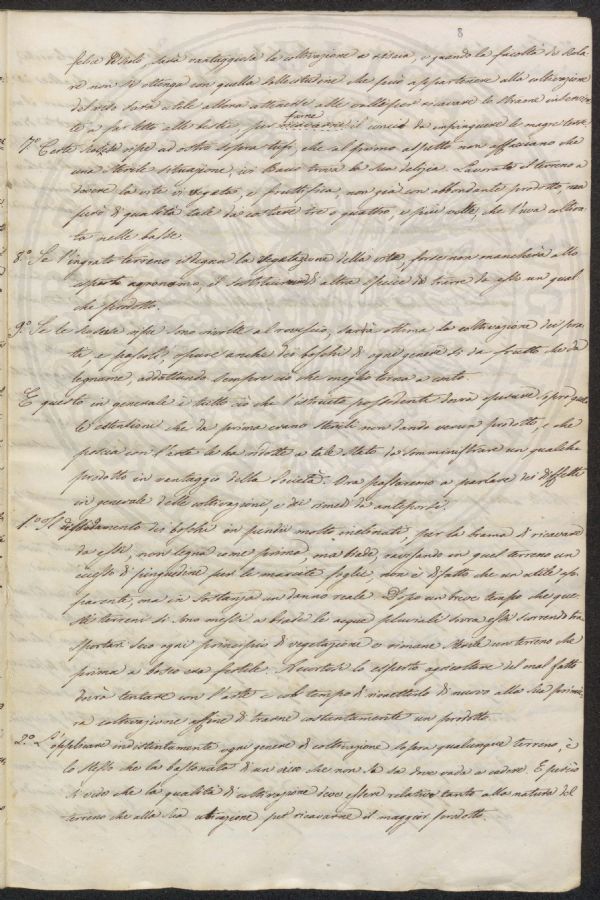 8
sarà vantaggiosa la coltivazione a risaja, e quando la facoltà di
non si ottenga con quella sollecitudine che può appartenere alla coltivazione
del riso sarà utile allora per ricavare lo strame
a far letto alle bestie, per farne il concio da impinguare le magre terre.
7.° Certe ad ostro sopra tufi, che al primo aspetto non che
una sterile situazione, ivi Bacco trova la sua delizia. Lavorato il terreno a
dovere la vite vi vegeta, e fruttifica, non già con abbondante prodotto, ma
però di qualità tale da costare tre o quattro, e più volte, che l'uva coltiva-
ta nelle basse.
8.° Se l'ingrato terreno la vegetazione della vite, forse non mancherà allo
esperto agronomo, di altra specie di trarre da esso un qual
che prodotto.
9.° Se le stesse ripe sono rivolte al rovescio, sarà ottima la coltivazione dei pra-
ti, e pascoli, oppure anche dei boschi di ogni genere sì da frutto che da
legname, addottando sempre ciò che meglio torna a conto.
E questo in generale è tutto ciò che l'istruito possidente dovrà operare
che da prima erano sterili non dando verun prodotto, e che
poscia con l'arte le ha ridotte a tale stato da somministrare un qualche
prodotto in vantaggio della Società. Ora passeremo a parlare dei diffetti
in generale delle coltivazioni, e dei rimedj da
1.° Il dei boschi in pendii molto inclinati, per la brama di ricavare
da essi, non legna come prima, ma biade, in quel terreno un
eccesso di pinguedine per le marcite foglie, non è di fatto che un utile ap-
parente, ma in sostanza un danno reale. Dopo un breve tempo che que-
sti terreni si sono messi a biade le acque pluviali sovra essi scorrendo tra
sportan seco ogni principio di vegetazione e rimane sterile un terreno che
prima a bosco era fertile. Accortosi lo esperto agricoltore del mal fatto
dovrà tentare con l'arte e col tempo di rimetterlo di nuovo alla sua primie-
ra coltivazione affine di trarne costantemente un prodotto.
2.° L'applicare indistintamente ogni genere di coltivazione sopra qualunque terreno, è
lo stesso che la bastonata di un cieco che non si sa dove vada a cadere. E perciò
che la qualità di coltivazione deve essere relativa tanto alla natura del
terreno che alla sua situazione per ricavarne il maggior prodotto.